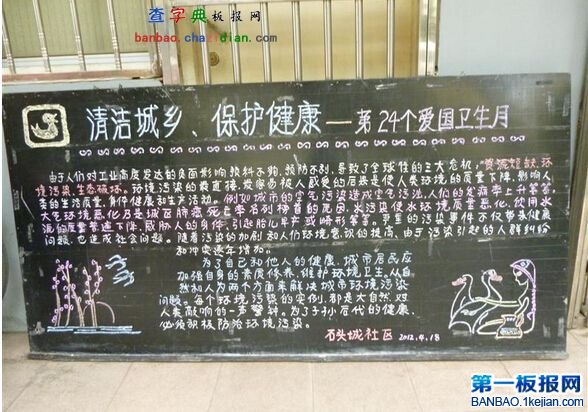 查字典板报网
banbao.chazidian.com
清洁城乡、保护健康—第24个爱国卫生月
由于人们对工业高度发达的负面影响预料不够,预防不利,导致了全球性的三大危机:资源短缺、环
境污染、生态破坏。环境污染的最直接、最容易被人感受的后果是使人类环境的质量下降,影响人
类的生活质量、身体健康和生产活动。例如城市的空气污染造成空气污浊,人们的发病率上升等等;
水污染使水环境质量恶化,饮用水
源的质量普遍下降,威胁人的身体,引起胎儿早产或畸形等等。严重的污染事件不仅带来健康
问题,也造成社会问题。随着污染的加剧和人们环境意识的提高,由于污染引起的人群纠纷
和冲突逐年增加。
为了自己和他人的健康,城市居民应
加强自身的素质修养,维护环境卫生。从自
我和人为两个方面来解决城市环境污染
问题。每个环境污染的实例,都是大自然对
人类敲响的一声警钟。为了子孙后代的健康,
必须积极防治环境污染。
石头城社区 2012.4.18
第一板报网
BANBAO.1kejian.com